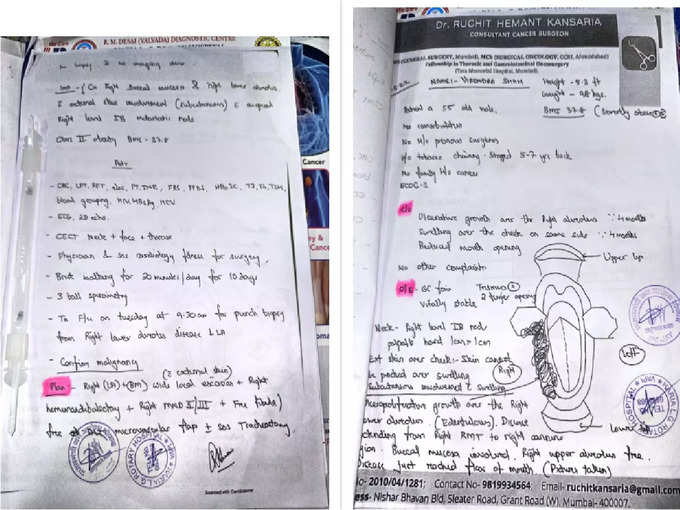 R. M. DESAI (VALVADA) DIAGNOSTIC CENTRE
Imp - Ca Right Buccal mucosa & right lower alveolus
c external skin involvement (subcutaneous) c
Right level IB metastatic node
Class II obesity BMI - 37.8
Adv
- CBC, LFT, RFT, PT, INR, FBS, PPBS, HBA1C, T3, T4, TSH,
blood grouping, HIV, HBsAg, HCV
- ECG, 2D echo
- CECT neck + face + thorax
- Physician & cardiology fitness for surgery
- Brisk walking for 20 minutes/day for 10 days
- 3 ball spirometry
- To F/u on tuesday at 9:30am for punch biopsy
from Right lower alveolus disease LA
- Confirm malignancy
(c external skin)
Plan - Right (LA) + (BM) wide local excision + Right
hemimandibulectomy + Right MND II/III + Free fibula
microvascular flap ± SOS Tracheostomy
Scanned with CamScanner
Cancer
Dr. RUCHIT HEMANT KANSARIA
CONSULTANT CANCER SURGEON
GENERAL SURGERY, Mumbai), MCh (SURGICAL ONCOLOGY, GCRI, Ahmedabad)
Fellowship in Thoracic and Gastrointestinal Oncosurgery
(Tata Memorial Hospital, Mumbai)
NAME:- VIRENDRA SHAH
Height - 5.3 ft
Weight - 98 kgs
BMI 37.8 (Severely obese)
a 55 old male
No comorbidities
No H/o previous surgeries
H/o tobacco chewing - Stopped 5-7 yrs back
No family H/o cancer
ECOG-
C/o
Ulcerative growth over the Right alveolus ∵ 4 months
Swelling over the cheek on same side ∵ 4 months
Reduced mouth opening
No other complaints
Upper lip
O/E - GC fair
Vitally stable
Trismus
2 finger opening
Neck - Right level IB node
palpable hard 1cm x 1cm
Ext skin over cheek - Skin cannot
be pinched over swelling
Subcutaneous involvement c swelling
Right
left
Ulceroproliferative growth over the Right
lower alveolus (Edentulous). Disease
extending from Right RMT to right canine
region. Buccal mucosa involved, Right upper alveolus free.
Disease just reached floor of mouth (Picture taken)
Lower lip
No- 2010/04/1281; Contact No- 9819934564; Email- ruchitkansaria@gmail.com
ess- Nishar Bhavan Bld, Sleater Road, Grant Road (W), Mumbai-400007.